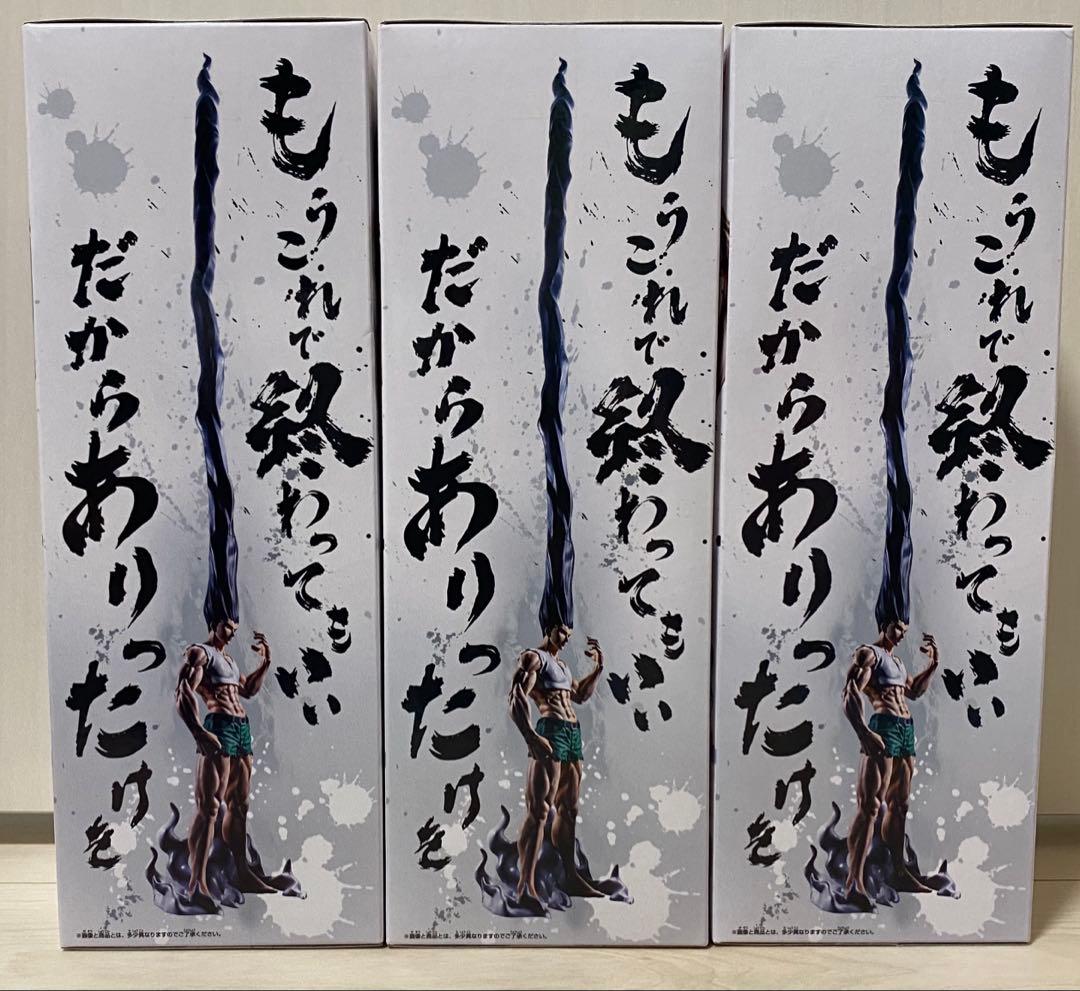 もうこれで終わってもいい
だからありったけを
※画像と商品とは、多少異なりますのでご了承ください。
もうこれで終わってもいい
だからありったけを
※画像と商品とは、多少異なりますのでご了承ください。
もうこれで終わってもいい
だからありったけを
※画像と商品とは、多少異なりますのでご了承ください。